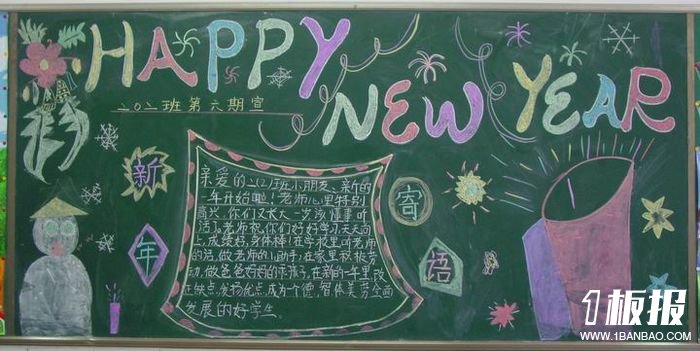 HAPPY
NEW YEAR
二〇二班第六期宣
新
年
寄
语
亲爱的202班小朋友、新的
一年开始啦！老师心里特别
高兴，你们又长大一岁该懂事听
话了。老师祝你们好好学习天天向
上，成绩好，身体棒！在学校里听老师
的话，做老师的小助手，在家里积极劳
动，做爸爸妈妈的乖孩子，在新的一年里改
正缺点，发扬优点，成为一个德、智体美劳全面
发展的好学生。
1板报
WWW.1BANBAO.COM